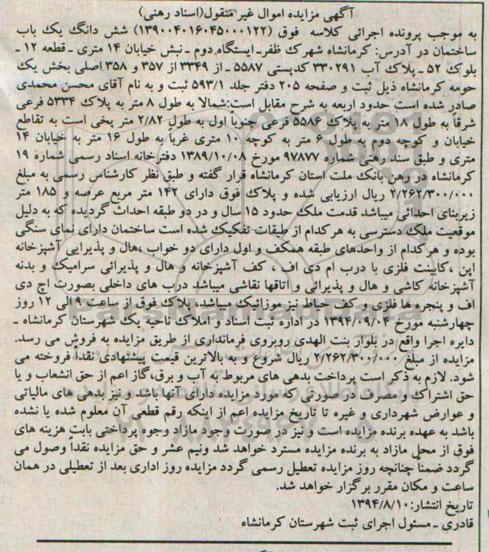 آگهی مزایده اموال غیر منقول(اسناد رهنی)
به موجب پرونده اجرائی کلاسه فوق (۱۳۹۰۰۴۰۱۶۰۴۵۰۰۰۱۲۲) شش دانگ یک باب
ساختمان در آدرس: کرمانشاه شهرک ظفر_ ایستگاه دوم _ نبش خیابان ۱۴ متری _ قطعه ۱۲ _
بلوک ۵۲ _ پلاک آب ۳۳۰۲۹۱ کدپستی ۵۵۸۷ _ از ۳۳۴۹ از ۳۵۷ و ۳۵۸ اصلی بخش یک
حومه کرمانشاه ذیل ثبت و صفحه ۲۰۵ دفتر جلد ۵۹۳/۱ ثبت و به نام آقای محسن محمدی
صادر شده است حدود اربعه به شرح مقابل است:شمالا به طول ۸ متر به پلاک ۵۳۳۴ فرعی
شرقا به طول ۱۸ متر به پلاک ۵۵۸۶ فرعی جنوبا اول به طول ۲/۸۲ متر پخی است به تقاطع
خیابان و کوچه دوم به طول ۶ متر به کوچه ۱۰ متری غربا به طول ۱۶ متر به خیابان ۱۴
متری و طبق سند رهنی شماره ۹۷۸۷۷ مورخ ۱۳۸۹/۱۰/۰۸ دفترخانه اسناد رسمی شماره ۱۹
کرمانشاه در رهن بانک ملت استان کرمانشاه قرار گفته و طبق نظر کارشناس رسمی به مبلغ
۲/۲۶۲/۳۰۰/۰۰۰ ریال ارزیابی شده و پلاک فوق دارای ۱۴۲ متر مربع عرصه و ۱۸۵ متر
زیربنای احداثی میباشد قدمت ملک حدود ۱۵ سال و در دو طبقه احداث گردیده که به دلیل
موقعیت ملک دسترسی به هر کدام از طبقات تفکیک شده است ساختمان دارای نمای سنگی
بوده و هر کدام از واحدهای طبقه همکف و اول دارای دو خواب ،هال و پذیرایی آشپزخانه
اپن ،کابینت فلزی با درب ام دی اف ، کف آشپزخانه و هال و پذیرائی سرامیک و بدنه
آشپزخانه کاشی و هال و پذیرائی و اتاقها نقاشی میباشد درب های داخلی بصورت اچ دی
اف و پنجره ها فلزی و کف حیاط نیز موزائیک میباشد، پلاک فوق از ساعت ۹ الی ۱۲ روز
چهارشنبه مورخ ۱۳۹۴/۰۹/۰۴ در اداره ثبت اسناد و املاک ناحیه یک شهرستان کرمانشاه _
دایره اجرا واقع در بلوار بنت الهدی روبروی فرمانداری از طریق مزایده به فروش می رسد.
مزایده از مبلغ ۲/۲۶۲/۳۰۰/۰۰۰ ریال شروع و به بالاترین قیمت پیشنهادی نقدا فروخته می
شود. لازم به ذکر است پرداخت بدهی های مربوط به آب و برق،گاز اعم از حق انشعاب و یا
حق اشتراک و مصرف در صورتی که مورد مزایده دارای آنها باشد و نیز بدهی های مالیاتی
و عوارض شهرداری و غیره تا تاریخ مزایده اعم از اینکه رقم قطعی آن معلوم شده یا نشده
باشد به عهده برنده مزایده است و نیز در صورت وجود مازاد وجوه پرداختی بابت هزینه های
فوق از محل مازاد به برنده مزایده مسترد خواهد شد ونیم عشر و حق مزایده نقدا وصول می
گردد ضمنا چنانچه روز مزایده تعطیل رسمی گردد مزایده روز اداری بعد از تعطیلی در همان
ساعت و مکان مقرر برگزار خواهد شد.
تاریخ انتشار:۱۳۹۴/۸/۱۰
قادری _ مسئول اجرای ثبت شهرستان کرمانشاه